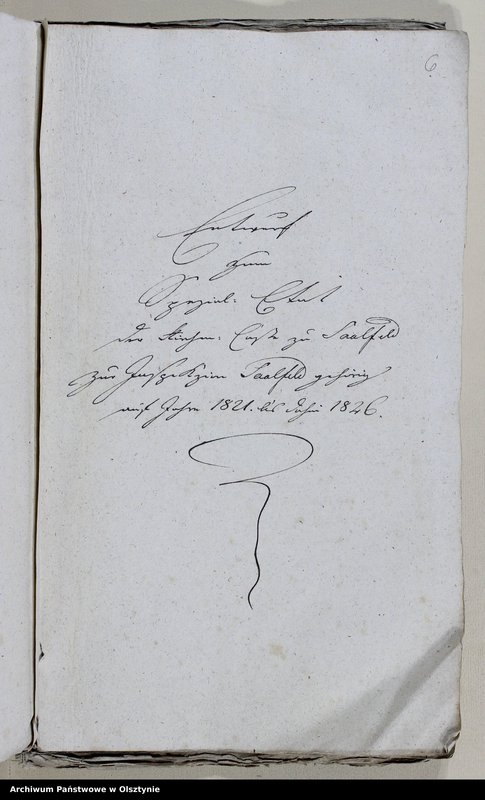 6
Entwurf
zum
Spezial-Etat
der Kirchen-Casse zu Saalfeld
zur Inspekzion Saalfeld gehörig
auf Jahre 1821. bis dahin 1826.
Archiwum Państwowe w Olsztynie